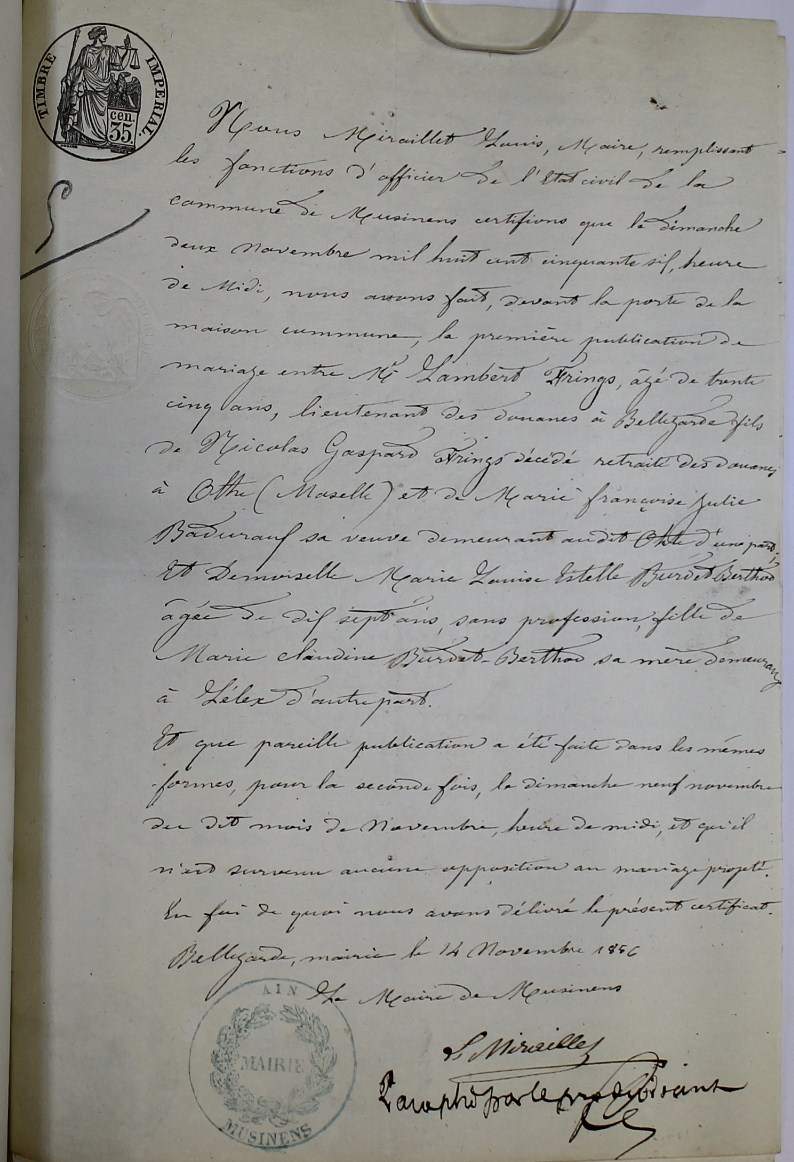 TIMBRE IMPERIAL.
cen. 35
Nous Miraillet Louis, Maire, remplissant
les fonctions d'officier de l'Etat civil de la
commune de Musinens certifions que le dimanche
deux novembre mil huit cent cinquante six, heure
de Midi, nous avons fait, devant la porte de la
maison commune, la première publication de
mariage entre Mr Lambert Frings, âgé de trente
cinq ans, lieutenant des douanes à Bellegarde fils
de Nicolas Gaspard Frings décédé, retraité des douanes
à (Moselle) et de Marie françoise Julie
sa veuve demeurant audit d'une part,
Et Demoiselle Marie Louise Estelle Burdet-Berthod
âgée de dix sept ans, sans profession, fille de
Marie claudine Burdet-Berthod sa mère demeurant
à Lélex d'autre part.
Et que pareille publication a été faite dans les mêmes
formes, pour la seconde fois, le dimanche neuf novembre
du dit mois de Novembre, heure de midi, et qu'il
n'est survenu aucune opposition au mariage projeté.
En foi de quoi nous avons délivré le présent certificat.
Bellegarde, mairie le 14 Novembre 1856
Le Maire de Musinens
L Miraillet
AIN
MAIRIE
MUSINENS
Paraphé par le